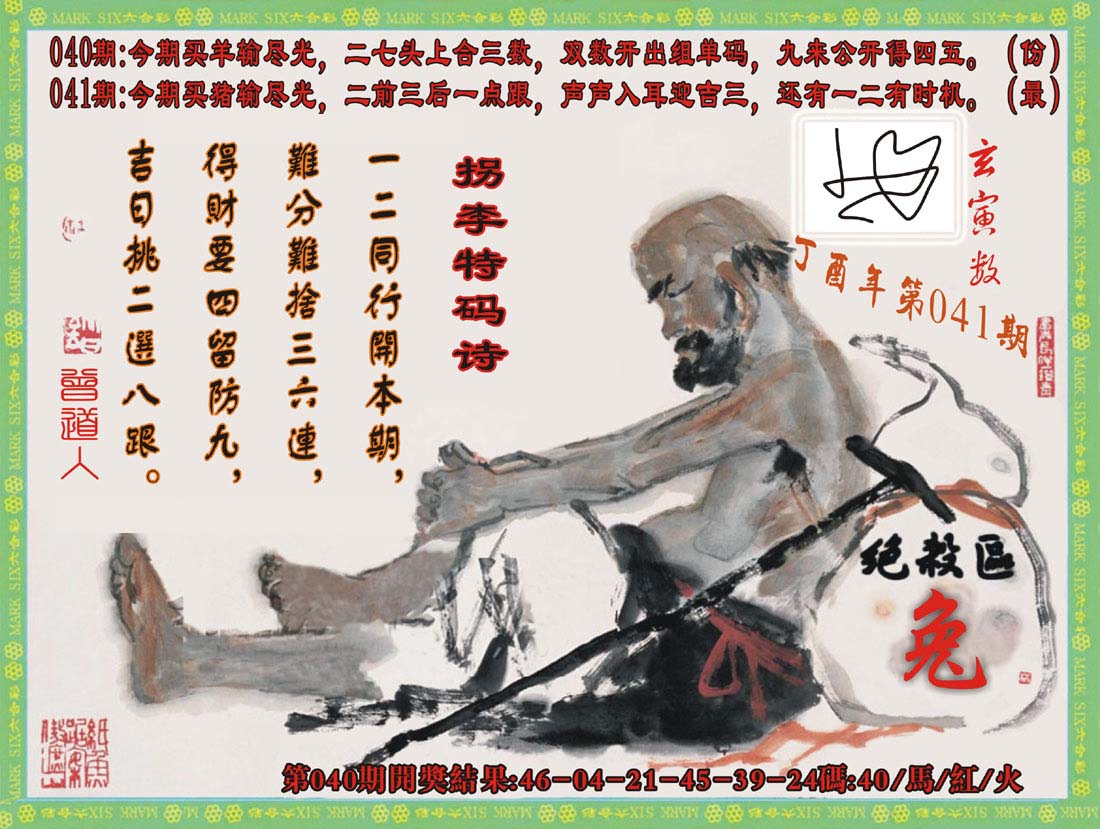 MARK SIX六合彩
040期:今期买羊输尽光，二七头上合三数，双数开出组单码，九来公开得四五。（份）
041期:今期买猪输尽光，二前三后一点跟，声声入耳迎吉三，还有一二有时机。（最）
玄寅数
丁酉年第041期
拐李特码诗
一二同行開本期，
難分難捨三六連，
得財要四留防九，
吉日挑二選八跟。
曾道人
绝殺區
兔
第040期開獎結果:46-04-21-45-39-24碼:40/馬/紅/火